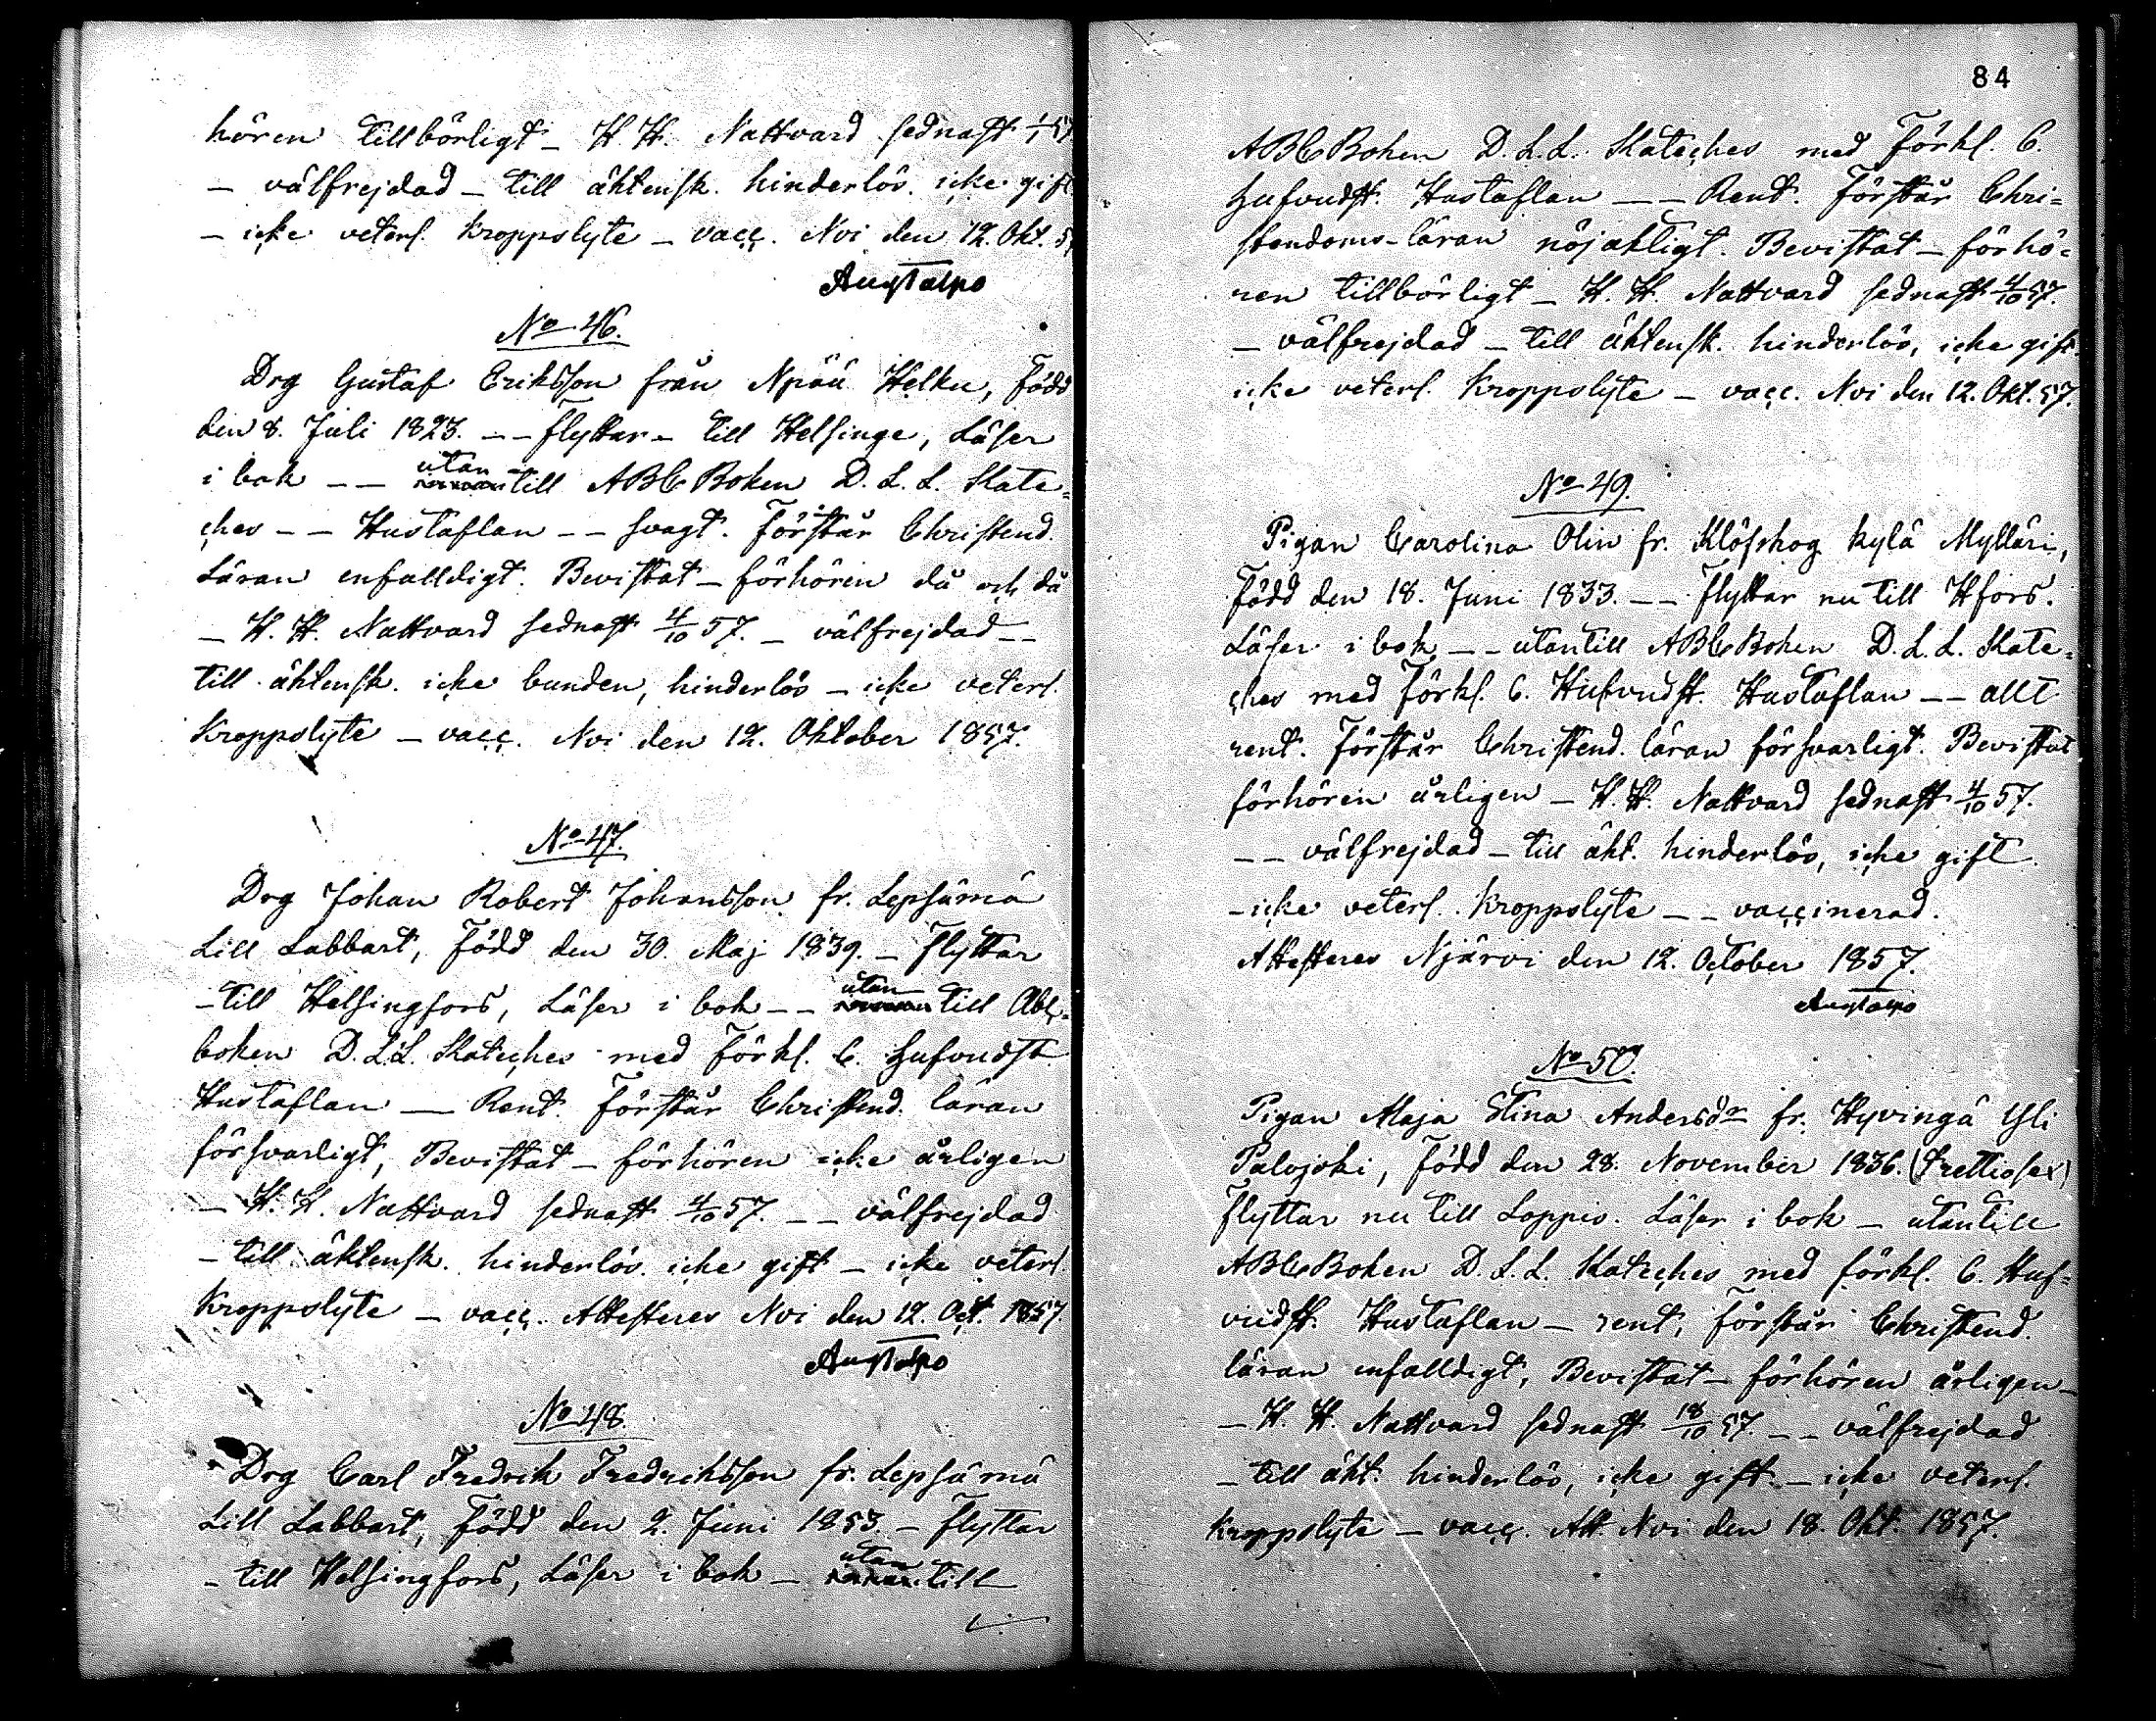 hören tillbörligt _ H. H. Nattvard sednast
_ välfrejdad _ till äktensk. hinderlös. icke gift
_ icke veterl. Kroppslyte _ vacc. Nvi den 12. Okt.
No 46.
Drg Gustaf Eriksson från Npää Helku, född
den 8. Juli 1823. _ _ flyttar _ till Helsinge, Läser
i bok _ _ utantill ABC Boken D. L. L. Kate=
ches _ _ Hustaflan _ _ svagt. Förstår Christend.
Läran enfalldigt. Bevistat _ förhören då och då
_ H. H. Nattvard sednast 4/10 57. _ välfrejdad _ _
till äktensk. icke bunden, hinderlös _ icke veterl.
Kroppslyte _ vacc. Nvi den 12. Oktober 1857.
No 47.
Drg Johan Robert Johansson fr. Lepsämä
Lill Labbart, född den 30. Maj 1839. _ Flyttar
_ till Helsingfors, Läser i bok _ _ utan till Abc=
boken D. L. L. Kateches med Förkl. 6. Hufvudst.
Hustaflan _ Rent. Förstår Christend. läran
försvarligt, Bevistat _ förhören icke årligen
_ H. H. Nattvard sednast 4/10 57. _ _ välfrejdad
_ till äktensk. hinderlös. icke gift _ icke veterl.
Kroppslyte _ vacc. Attesteras Nvi den 12. Oct. 1857.
No 48.
Drg Carl Fredrik Fredriksson fr. Lepsämä
Lill Labbart, född den 2. Juni 1853. _ Flyttar
_ till Helsingfors, Läser i bok _ utan till
84
ABC Boken D. L. L. Kateches med Förkl. 6.
Hufvudst. Hustaflan _ _ Rent. Förstår Chri=
stendoms-läran nöjaktligt. Bevistat _ förhö=
ren tillbörligt _ H. H. Nattvard sednast 4/10 57.
_ välfrejdad _ till äktensk. hinderlös, icke gift.
icke veterl. Kroppslyte _ vacc. Nvi den 12. Okt. 57.
No 49.
Pigan Carolina Olin fr. Klöfskog kylä Mylläri,
född den 18. Juni 1833. _ _ Flyttar nu till Hfors.
Läser i bok _ _ utantill ABC Boken D. L. L. Kate=
ches med Förkl. 6. Hufvudst. Hustaflan _ _ allt
rent. Förstår Christend. läran försvarligt. Bevistat
förhören årligen _ H. H. Nattvard sednast 4/10 57.
_ _ välfrejdad _ till äkt. hinderlös, icke gift.
_ icke veterl. Kroppslyte _ _ vaccinerad.
Attesteras Njärvi den 12. October 1857.
No 50.
Pigan Maja Stina Andersdr fr. Hyvingä Yli
Palojoki, född den 28. November 1836. (trettiosex)
Flyttar nu till Loppis. Läser i bok _ utantill
ABC Boken D. L. L. Kateches med förkl. 6. Huf=
vudst. Hustaflan _ rent, Förstår Christend.
läran enfalldigt, Bevistat _ förhören årligen _
_ H. H. Nattvard sednast 18/10 57. _ _ välfrejdad
_ till äkt. hinderlös, icke gift _ icke veterl.
Kroppslyte _ vacc. Att. Nvi den 18. Okt. 1857.